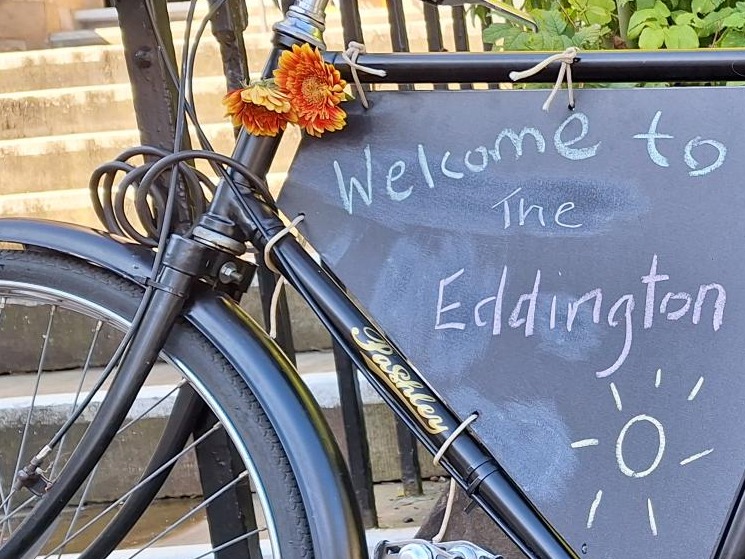 Welcome to
The
Eddington
Pashley